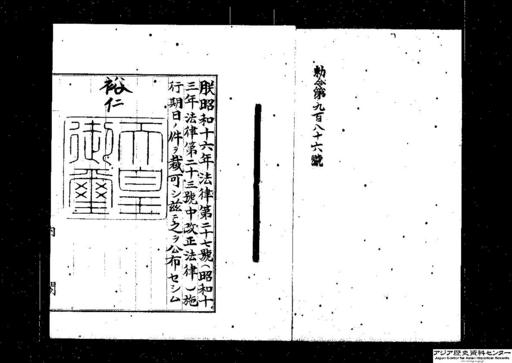 勅令第九百八十六號
朕昭和十六年法律第二十七號(昭和十
三年法律第二十三號中改正法律)施
行期日ノ件ヲ裁可シ茲ニ之ヲ公布セシム
裕仁
天皇御璽
内閣
アジア歴史資料センター
Japan Center for Asian Historical Records